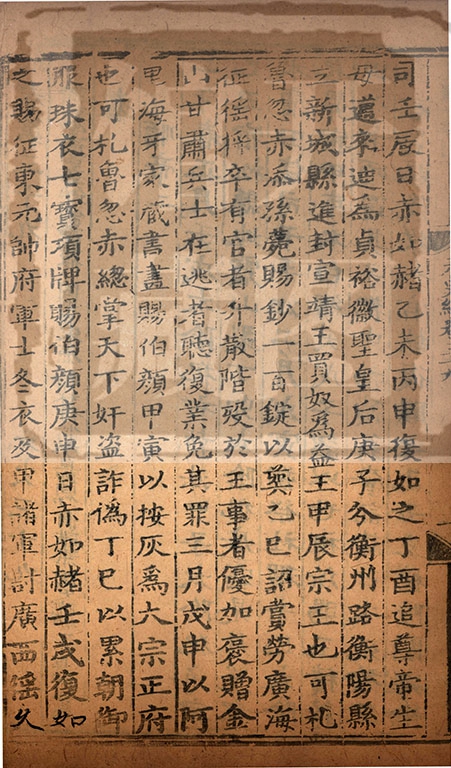 司壬辰日赤如赭乙未丙申復如之丁酉追尊帝生
母邁來迪為貞裕徽聖皇后庚子分衡州路衡陽縣
立新城縣進封宣靖王買奴為益王甲辰宗王也可札
魯忽赤添孫薨賜鈔一百錠以葬乙巳詔賞勞廣海
征徭將卒有官者升散階歿於王事者優加褒贈金
山甘肅兵士在逃者聽復業免其罪三月戊申以阿
里海牙家藏書盡賜伯顏甲寅以按灰為大宗正府
也可札魯忽赤總掌天下奸盜詐偽丁巳以累朝御
服珠衣七寶項牌賜伯顏庚申日赤如赭壬戌復如
之賜征東元帥府軍士冬衣及甲諸軍討廣西徭久